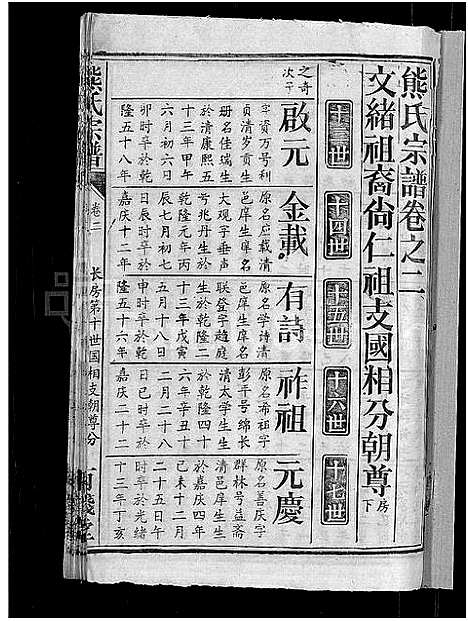 熊氏宗譜卷之二
文緒祖裔尙仁祖支國相分朝尊房下
十三世
十四世
十五世
十六世
十七世
之奇
次子
啟元
字資万号利
貞清岁贡生
册名佳瑞生
於清康熙五
十三年甲午
六月初六日
卯时卒於乾
隆五十八年
金載
原名应載清
邑庠生庠名
大观字垂声
号兆丹生於
乾隆元年丙
辰七月初七
日辰时卒於
嘉庆十二年
有詩
原名学詩清
邑庠生庠名
联登字趋庭
生於乾隆二
十三年戊寅
五月十八日
申时卒於乾
隆五十六年
祚祖
原名希祖字
彭平号绵长
清太学生生
於乾隆四十
六年辛丑十
二月二十八
日巳时卒於
嘉庆二十二
元慶
原名善庆字
群林号益斋
清邑庠生生
於嘉庆四年
己未十二月
二十五日午
时卒於光緒
十三年丁亥
熊氏宗譜
卷二
长房第十世国相支朝尊分